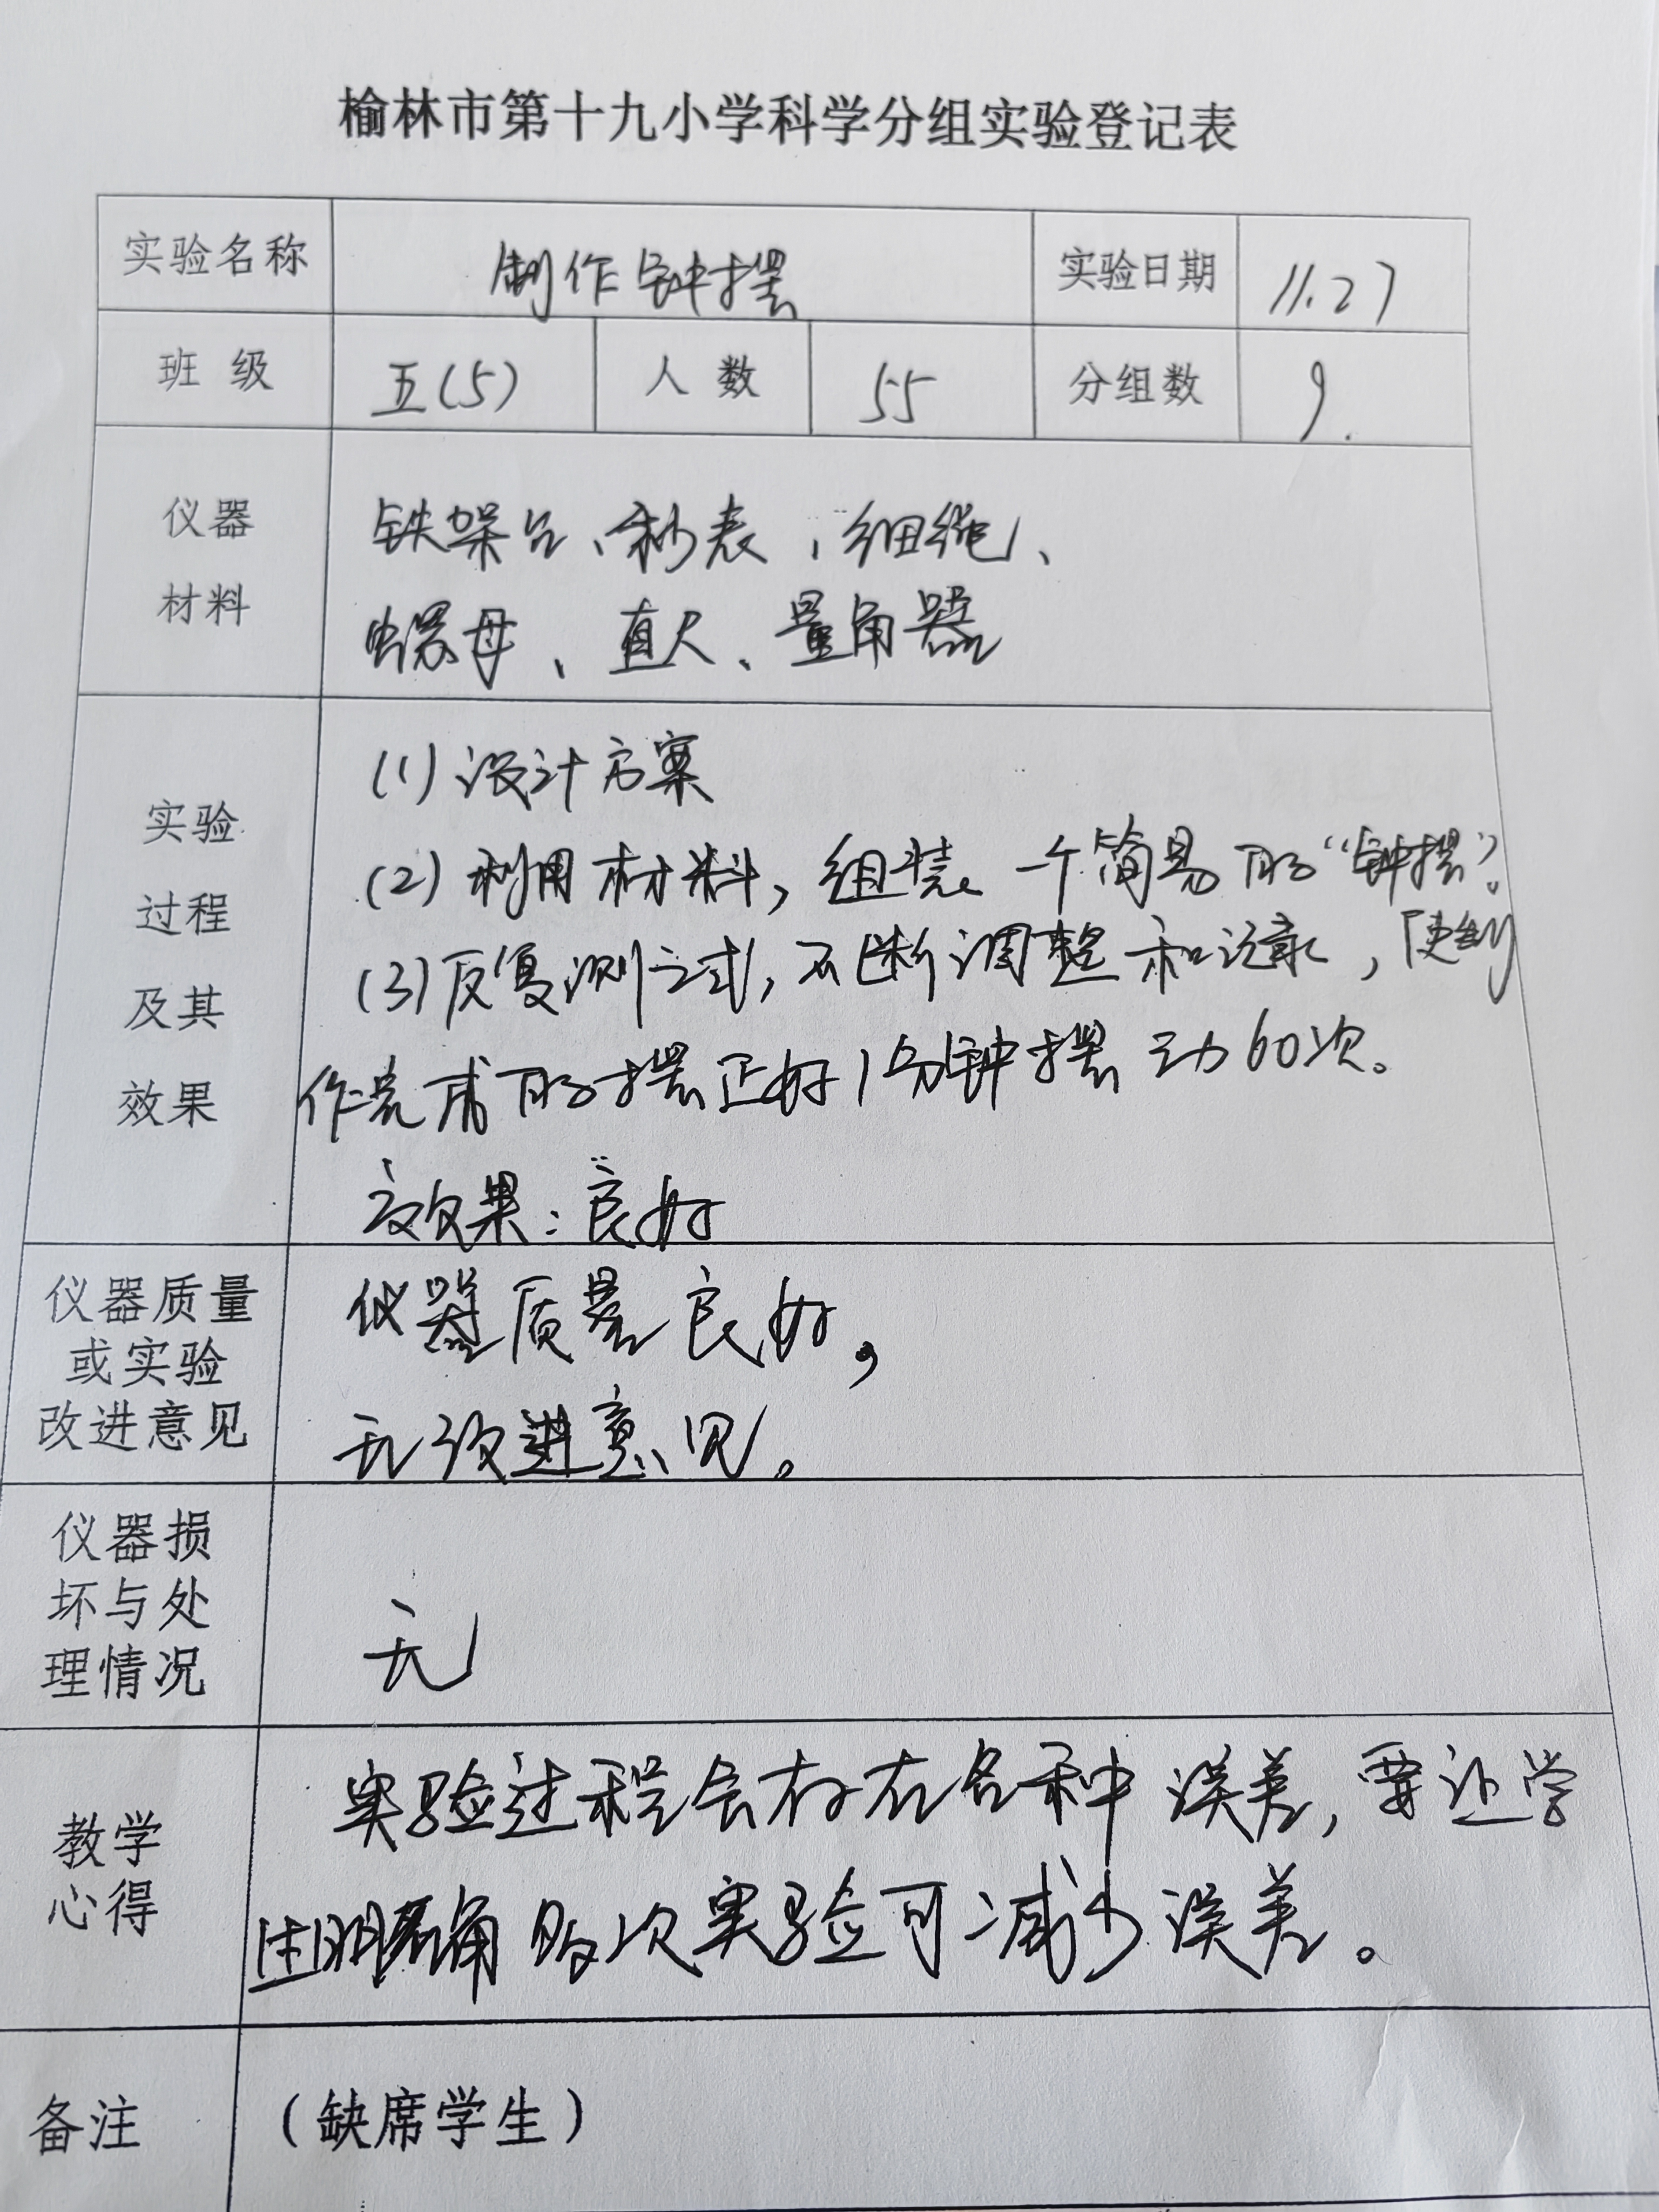 榆林市第十九小学科学分组实验登记表
实验名称 制作钟摆 实验日期 11.27
班 级 五(5) 人 数 55 分组数 9.
仪器
材料
铁架台、秒表、细绳、
螺母、直尺、量角器
实验
过程
及其
效果
(1)设计方案
(2)利用材料,组装一个简易的“钟摆”。
(3)反复测试,不断调整和记录,使制
作完成的摆正好1分钟摆动60次。
效果:良好
仪器质量
或实验
改进意见
仪器质量良好,
无改进意见。
仪器损
坏与处
理情况
无
教学
心得
实验过程会存在各种误差,要让学
生明确多次实验可减少误差。
备注 (缺席学生)